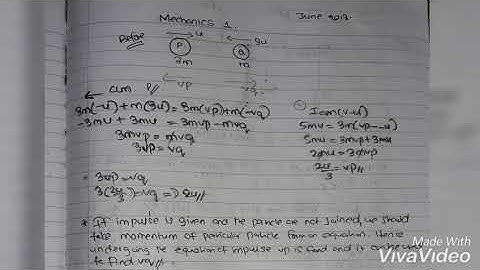 Mechanics 1
June 2013.
Before
u
3u
P
Q
3m
m
CLM P//
vp
vq
3m(-u)+m(3u)=3m(vp)+m(-vq)
-3mu + 3mu = 3mvp - mvq
3mvp = mvq
3vp = vq
I = m(v-u)
5mu = 3m(vp--u)
5mu = 3mvp+3mu
2mu = 3mvp
2u/3 = vp//
= 3vp = vq
3(2u/3) = vq => 2u//
* If impulse is given and the particle are not joined, we should
take momentum of particular particle form an equation. Hence
undergoing the equation of impulse vp is found and it can be used
to find vq//.
Made With
VivaVideo